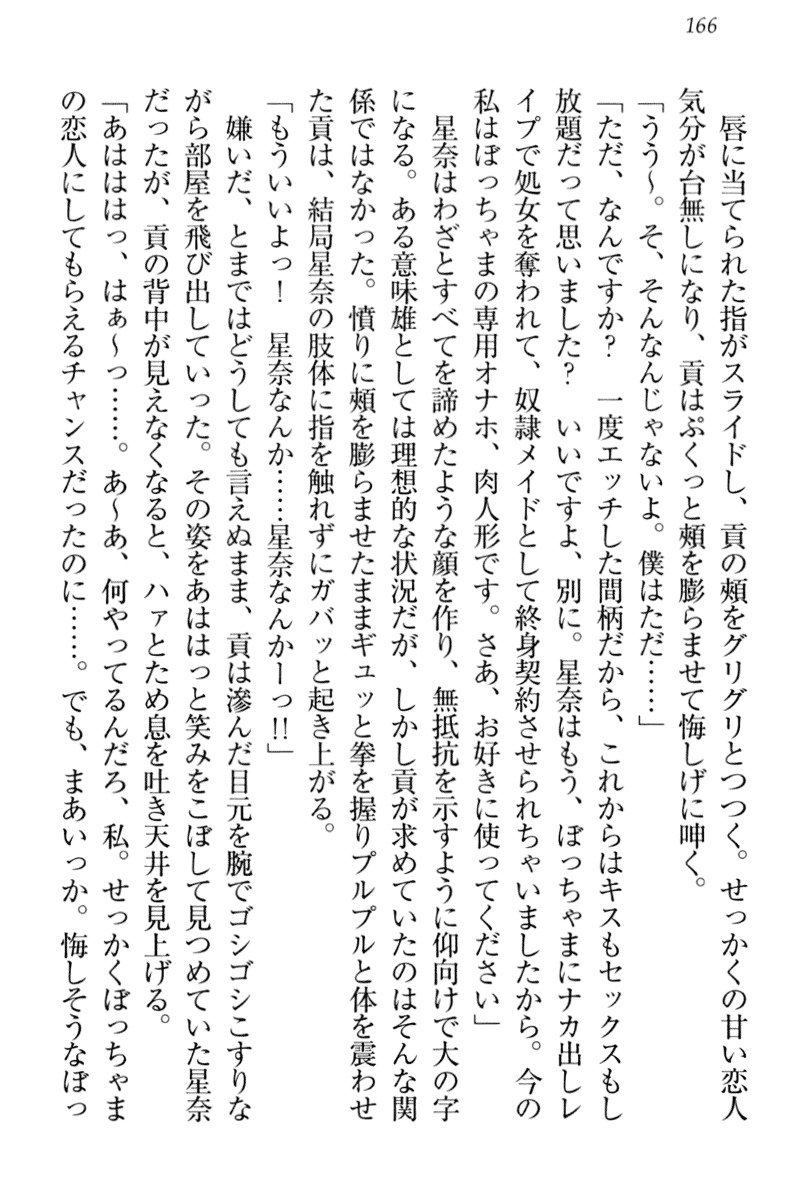 166
唇に当てられた指がスライドし、貢の頰をグリグリとつつく。せっかくの甘い恋人
気分が台無しになり、貢はぷくっと頰を膨らませて悔しげに呻く。
「うう〜。そ、そんなんじゃないよ。僕はただ……」
「ただ、なんですか?　一度エッチした間柄だから、これからはキスもセックスもし
放題だって思いました?　いいですよ、別に。星奈はもう、ぼっちゃまにナカ出しレ
イプで処女を奪われて、奴隷メイドとして終身契約させられちゃいましたから。今の
私はぼっちゃまの専用オナホ、肉人形です。さあ、お好きに使ってください」
星奈はわざとすべてを諦めたような顔を作り、無抵抗を示すように仰向けで大の字
になる。ある意味雄としては理想的な状況だが、しかし貢が求めていたのはそんな関
係ではなかった。憤りに頰を膨らませたままギュッと拳を握りプルプルと体を震わせ
た貢は、結局星奈の肢体に指を触れずにガバッと起き上がる。
「もういいよっ!　星奈なんか……星奈なんかーっ!!」
嫌いだ、とまではどうしても言えぬまま、貢は滲んだ目元を腕でゴシゴシこすりな
がら部屋を飛び出していった。その姿をあははっと笑みをこぼして見つめていた星奈
だったが、貢の背中が見えなくなると、ハァとため息を吐き天井を見上げる。
「あはははっ、はぁ〜っ……。あ〜あ、何やってるんだろ、私。せっかくぼっちゃま
の恋人にしてもらえるチャンスだったのに……。でも、まあいっか。悔しそうなぼっ